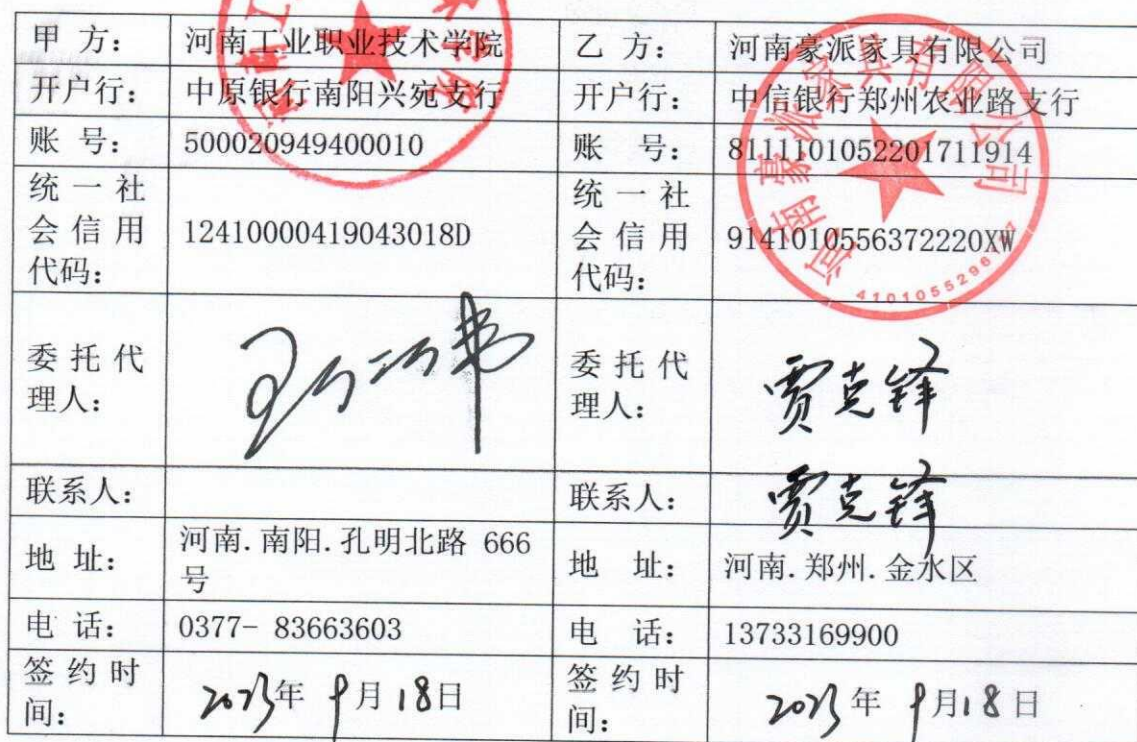 甲 方： 河南工业职业技术学院 乙 方： 河南豪派家具有限公司
开户行： 中原银行南阳兴宛支行 开户行： 中信银行郑州农业路支行
账 号： 500020949400010 账 号： 8111101052201711914
统 一 社
会 信 用
代码： 12410000419043018D 统 一 社
会 信 用
代码： 9141010556372220XW
河南豪派家具有限公司
委 托 代
理人： 委 托 代
理人： 贾克锋
联系人： 联系人： 贾克锋
地 址： 河南.南阳.孔明北路 666
号 地 址： 河南.郑州.金水区
电 话： 0377- 83663603 电 话： 13733169900
签 约 时
间： 2023年 9月18日 签 约 时
间： 2023年 9月18日